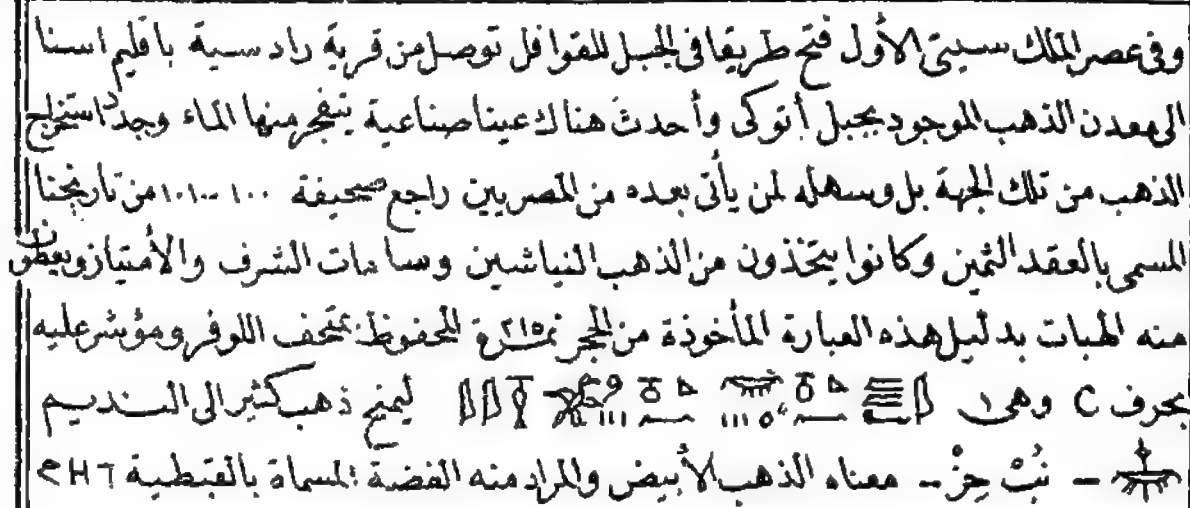 وفى عصر الملك سيتى الأول فتح طريقا فى الجبل للقوافل توصل من قرية رادسية باقليم اسنا
الى معدن الذهب الموجود بجبل أتوكى وأحدث هناك عينا صناعية يتفجر منها الماء وجدد استخراج
الذهب من تلك الجهة بل وسهله لمن يأتى بعده من المصريين راجع صحيفة ١٠٠-١٠١ من تاريخنا
المسمى بالعقد الثمين وكانوا يتخذون من الذهب النياشين وسامات الشرف والأمتياز ويعطون
منه الهبات بدليل هذه العبارة المأخوذة من الحجر نمرة ٢١٥ المحفوظ بمتحف اللوفر ومؤشر عليه
بحرف C وهى ليمنح ذهب كثير الى النديم
- نُبْ حِزْ - معناه الذهب الأبيض والمراد منه الفضة المسماة بالقبطية